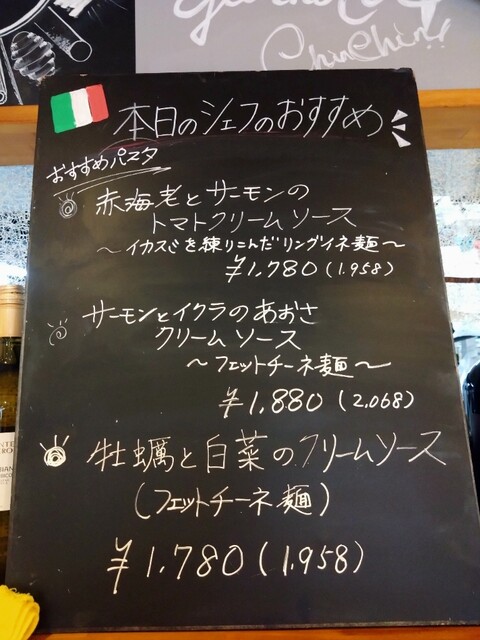 Chin Chin!!
本日のシェフのおすすめ
おすすめパスタ
赤海老とサーモンの
トマトクリームソース
〜イカスミを練りこんだリングイネ麺〜
¥1,780(1.958)
サーモンとイクラのあおさ
クリームソース
〜フェットチーネ麺〜
¥1,880(2,068)
牡蠣と白菜のクリームソース
(フェットチーネ麺)
¥1,780(1,958)